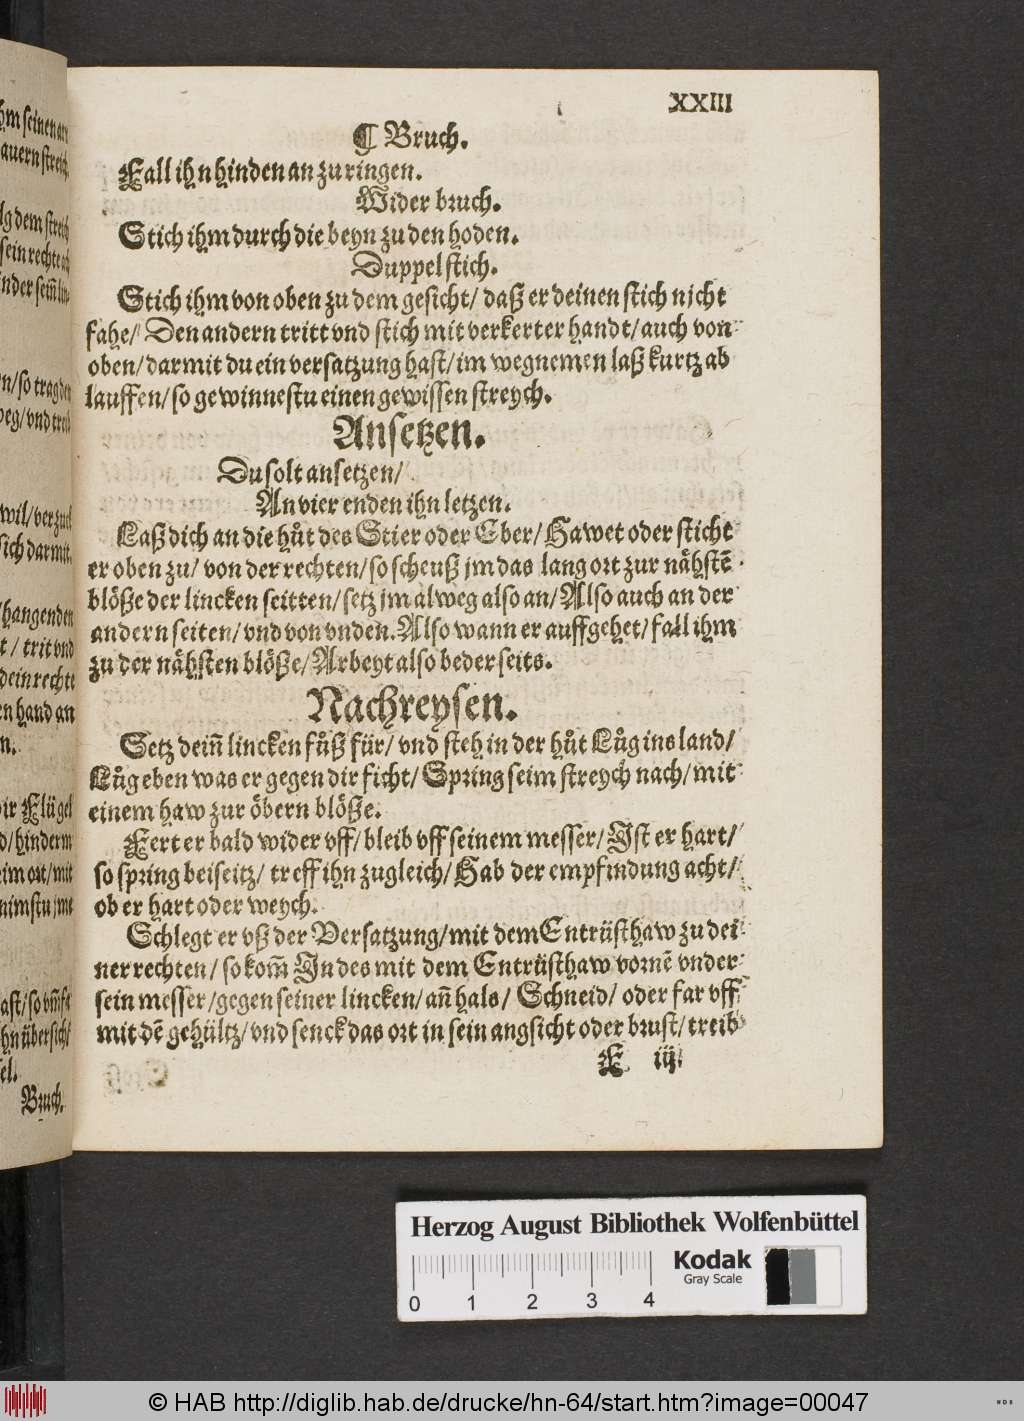 XXIII
¶ Bruch.
Fall ihn hinden an zu ringen.
Wider bruch.
Stich ihm durch die beyn zu den hoden.
Duppel stich.
Stich ihm von oben zu dem gesicht/ daß er deinen stich nicht
fahe/ Den andern tritt vnd stich mit verkerter handt/ auch von
oben/ darmit du ein versatzung hast/ im wegnemen laß kurtz ab
lauffen/ so gewinnestu einen gewissen streych.
Ansetzen.
Du solt ansetzen/
An vier enden ihn letzen.
Laß dich an die hůt des Stier oder Eber/ Hawet oder sticht
er oben zu/ von der rechten/ so scheuß jm das lang ort zur nähstē
blöße der lincken seitten/ setz jm alweg also an/ Also auch an der
andern seiten/ vnd von vnden. Also wann er auffgehet/ fall ihm
zu der nähsten blöße/ Arbeyt also beder seits.
Nachreysen.
Setz dein̄ lincken fůß für/ vnd steh in der hůt Lůg ins land/
Lůg eben was er gegen dir ficht/ Spring seim streych nach/ mit
einem haw zur öbern blöße.
Fert er bald wider vff/ bleib vff seinem messer/ Ist er hart/
so spring beiseitz/ treff ihn zugleich/ Hab der empfindung acht/
ob er hart oder weych.
Schlegt er vß der Versatzung/ mit dem Entrüsthaw zu dei
ner rechten/ so kom̄ Indes mit dem Entrüsthaw vornē vnder
sein messer/ gegen seiner lincken/ an̄ hals/ Schneid/ oder far vff
mit dē gehültz/ vnd senck das ort in sein angsicht oder brust/ treib
F iij
hm seinen
auern streich
dem streich
sein rechte
n/ so trag
weg/ vnd
wil/ verzuck
sich darmit.
hangenden
t/ trit vnd
dein rechte
n hand an
n.
ir Flügel
d/ hinderm
eim ort/ mit
nimstu jme
ast/ so
hn übersich/
el.
Bruch.
Herzog August Bibliothek Wolfenbüttel
Kodak
Gray Scale
0 1 2 3 4
© HAB http://diglib.hab.de/drucke/hn-64/start.htm?image=00047